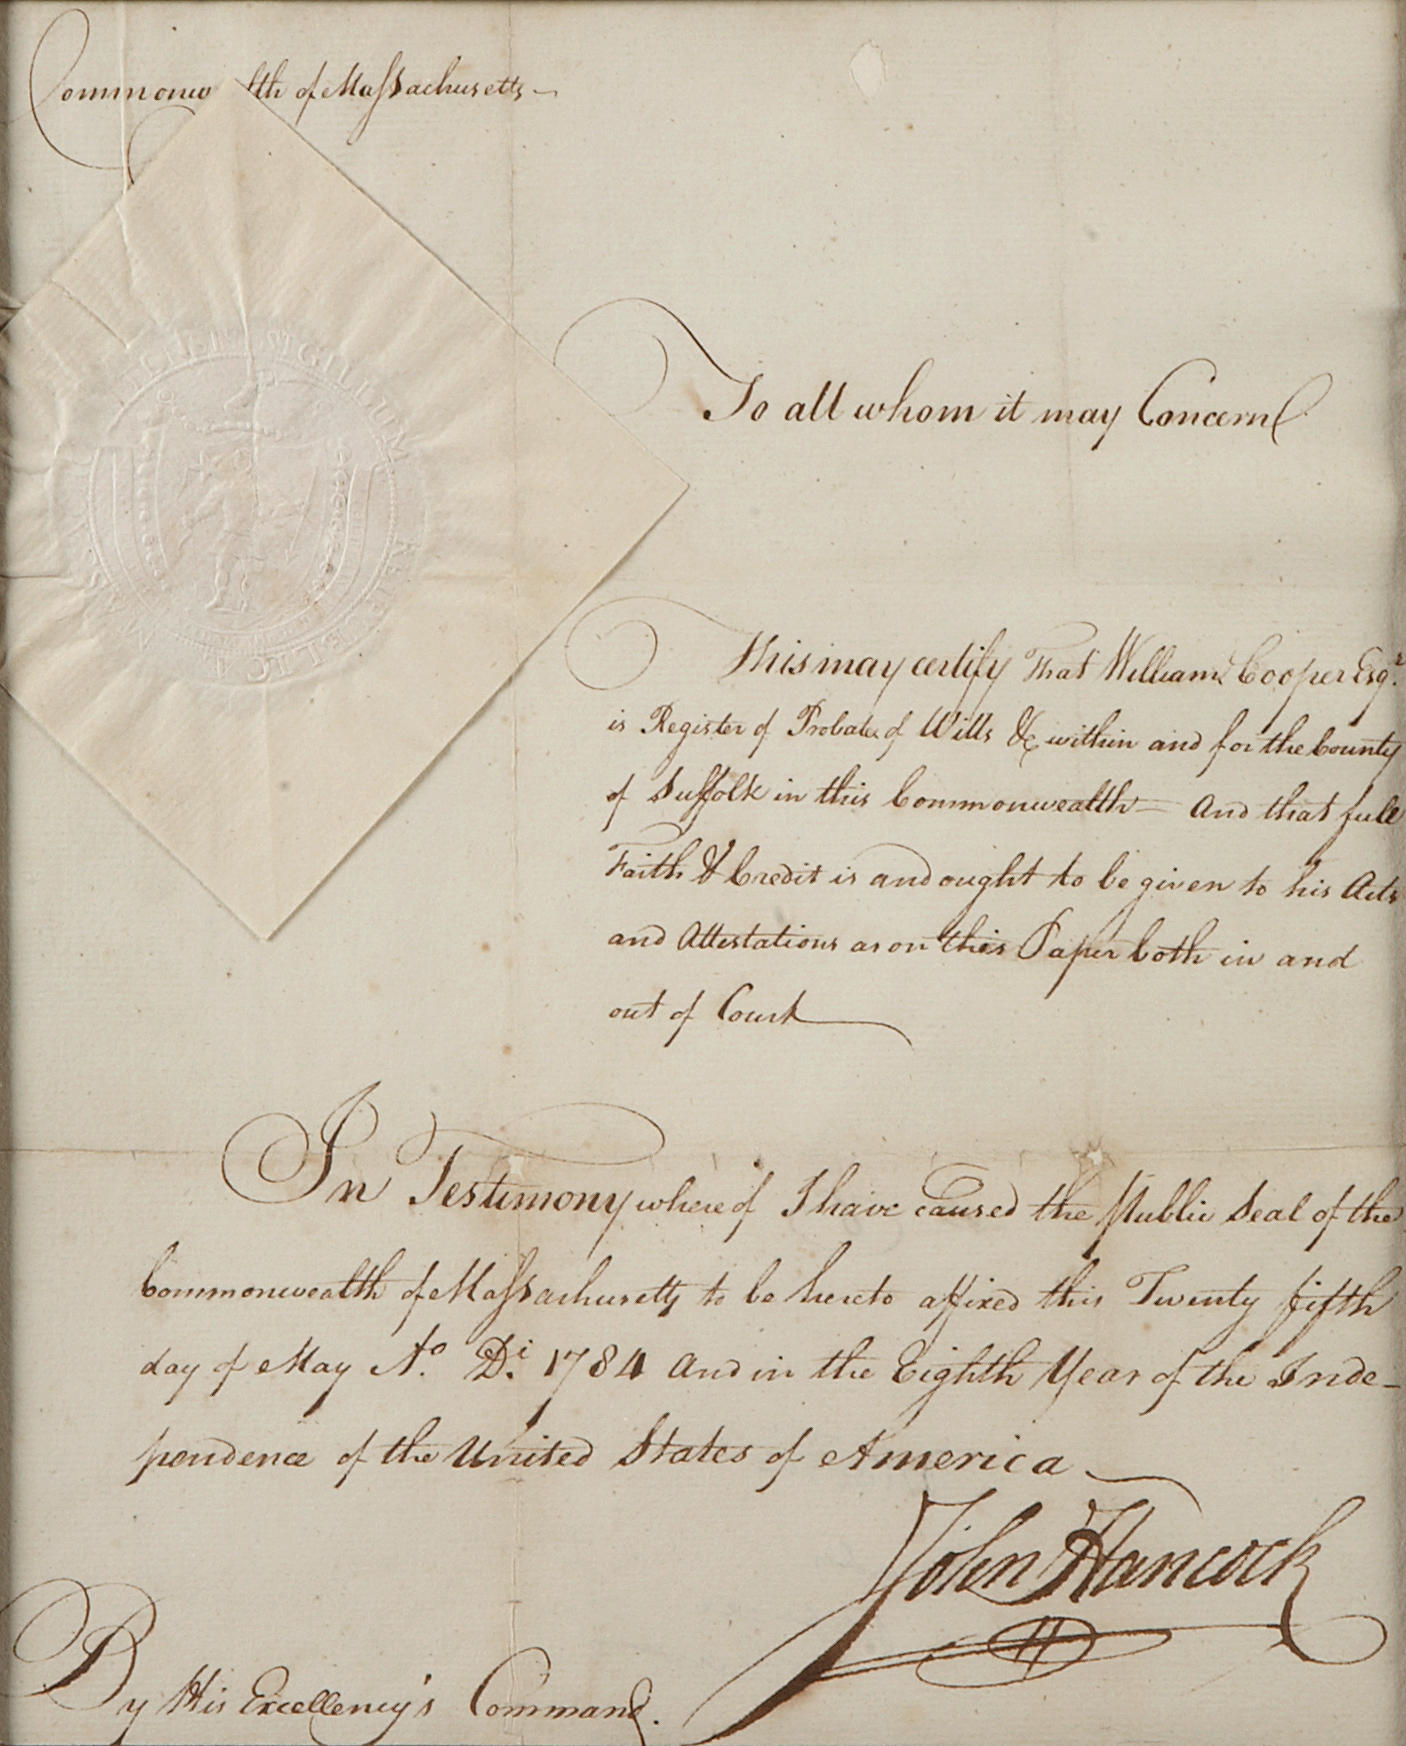 Commonw lth of Massachusetts
To all whom it may Concern
This may certify That William Cooper Esqr.
is Register of Probate of Wills &c within and for the County
of Suffolk in this Commonwealth = And that full
Faith & Credit is and ought to be given to his Acts
and Attestations as on this Paper both in and
out of Court
In Testimony whereof I have caused the Public Seal of the
Commonwealth of Massachusetts to be hereto affixed this Twenty fifth
day of May Ao. Di. 1784 And in the Eighth Year of the Inde-
pendence of the United States of America
John Hancock
By His Excellency's Command.